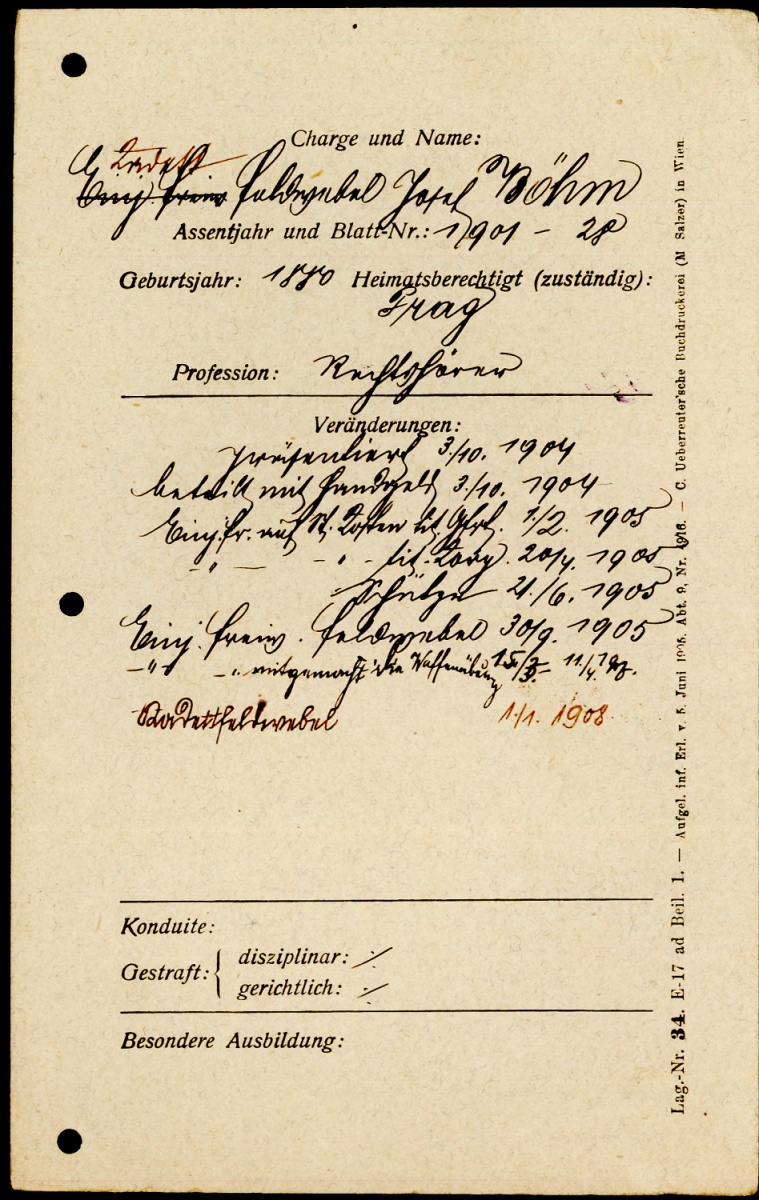 Charge und Name:
Kadett
Einj. freiw. Feldwebel Josef Böhm
Assentjahr und Blatt-Nr.: 1901 - 28
Geburtsjahr: 1880 Heimatsberechtigt (zuständig):
Prag
Profession: Rechtshörer
Veränderungen:
präsentiert 3./10. 1904
beteilt mit Handgeld 3./10. 1904
Einj. fr. auf St. Kosten tit. Gfrt. 1./2. 1905
-"- - " - tit. Korp. 20/4. 1905
Schütze 21./6. 1905
Einj. freiw. Feldwebel 30/9. 1905
-"- -"- mitgemacht die Waffenübung 15/3 - 11/4.
Kadettfeldwebel 1./1. 1908
Konduite:
Gestraft: disziplinar: ·/·
gerichtlich: ·/·
Besondere Ausbildung:
Lag.-Nr. 34. E-17 ad Beil. 1. — Aufgel. inf. Erl. v. 5. Juni 1905, Abt. 9, Nr. 1916. — C. Ueberreuter'sche Buchdruckerei (M Salzer) in Wien.